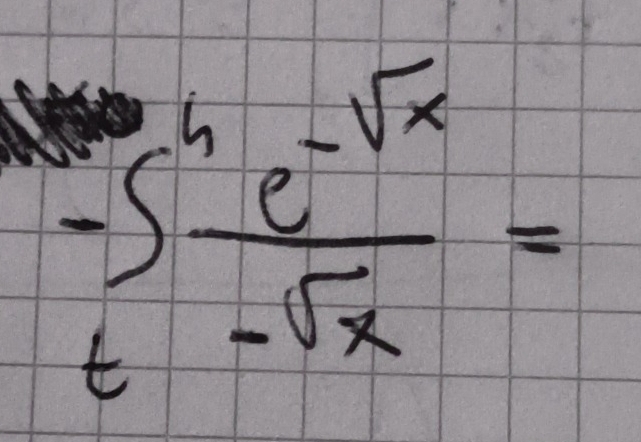 -∫ₜʰ e^(-√x) / (-√x) =